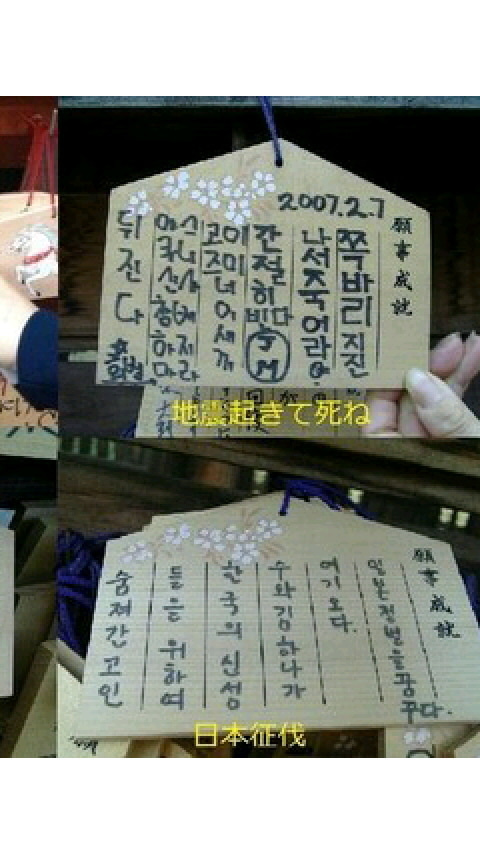 願事成就
2007.2.7
쪽바리 지진
나서 죽어라
간절히 빈다
JM
고이즈미 너
야스쿠니 신사
참배 하지마라
뒤진다
地震起きて死ね
願事成就
숨져간 고인
들을 위하여
한국의 신성
수와 김하나가
여기 오다.
일본정벌을 꿈꾸다.
日本征伐